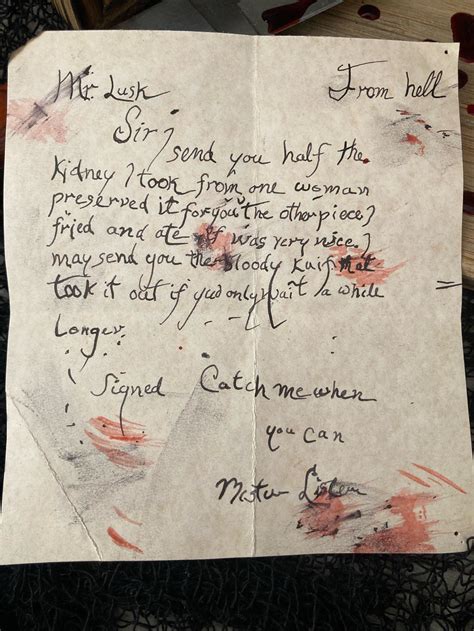 Mr. Lusk From hell
Sir,
I send you half the
kidney I took from one woman
preserved it for you the other piece I
fried and ate it was very nice. I
may send you the bloody knif that
took it out if you only wait a while
Longer.
Signed Catch me when
you can